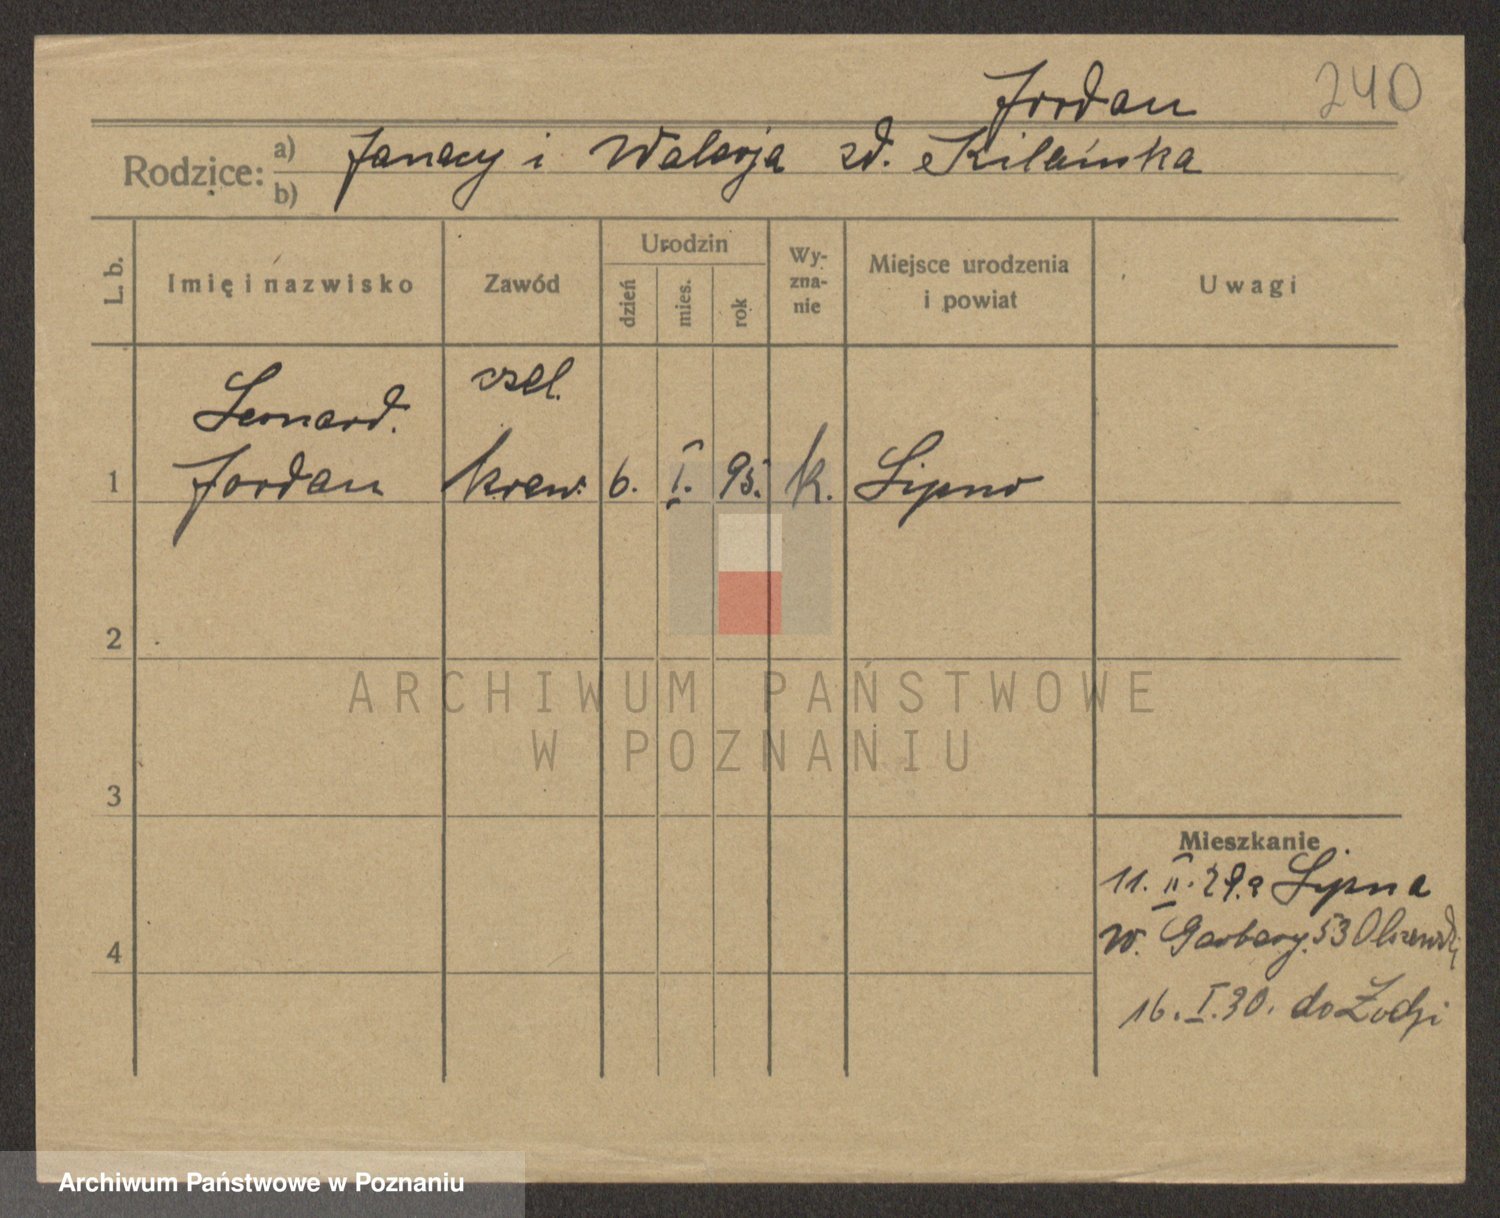 240
Jordan
Rodzice:
a) Janacy i Walerja zd. Kilańska
b)
L. b.
Imię i nazwisko
Zawód
Urodzin
dzień
mies.
rok
Wy-
zna-
nie
Miejsce urodzenia
i powiat
Uwagi
Leonard.
czel.
1 Jordan kraw. 6. I. 95. k. Lipno
2
ARCHIWUM PAŃSTWOWE
W POZNANIU
3
Mieszkanie
11. II. 29. z Lipna
4
w. Garbary. 53
16. I. 30. do Łodzi
Archiwum Państwowe w Poznaniu